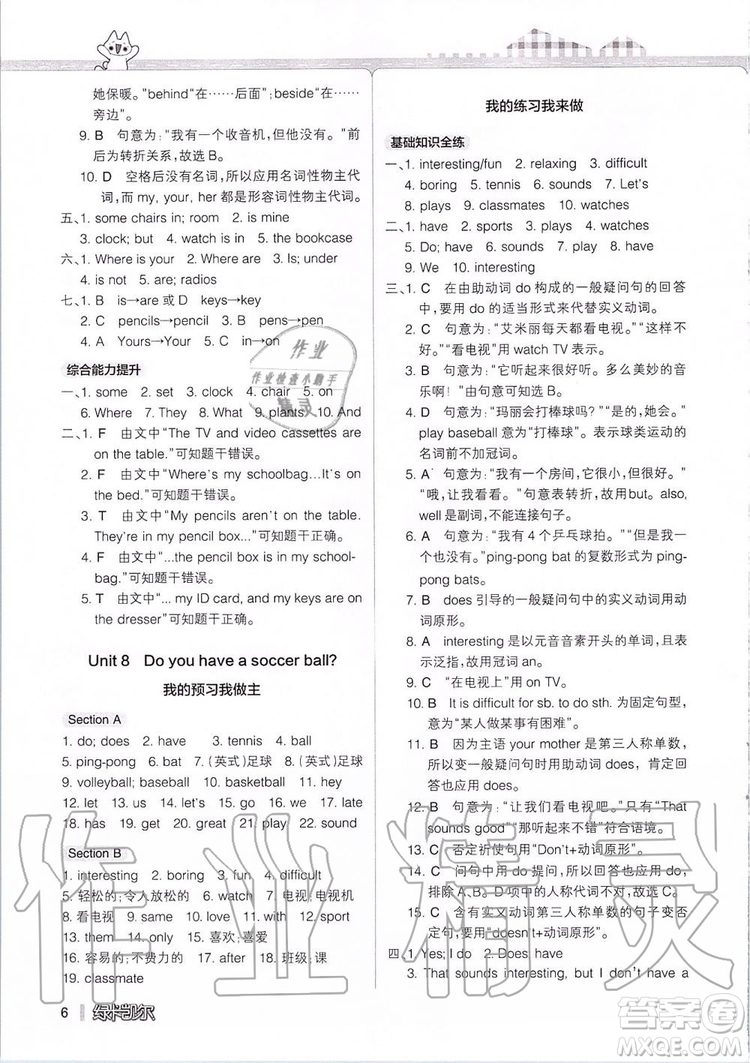 她保暖。"behind"在……后面"; beside"在……
旁边"。
9. B 句意为:"我有一个收音机,但他没有。"前
后为转折关系,故选B。
10. D 空格后没有名词,所以应用名词性物主代
词,而 my, your, her 都是形容词性物主代词。
五、1. some chairs in; room 2. is mine
3. clock; but 4. watch is in 5. the bookcase
六、1. Where is your 2. Where are 3. Is; under
4. is not 5. are; radios
七、1. B is→are 或 D keys→key
2. C pencils→pencil 3. B pens→pen
4. A Yours→Your 5. C in→on
综合能力提升
一、1. some 2. set 3. clock 4. chair 5. on
6. Where 7. They 8. What 9. plants 10. And
二、1. F 由文中"The TV and video cassettes are
on the table."可知题干错误。
2. F 由文中"Where's my schoolbag...It's on
the bed."可知题干错误。
3. T 由文中"My pencils aren't on the table.
They're in my pencil box..."可知题干正确。
4. F 由文中"...the pencil box is in my school-
bag."可知题干错误。
5. T 由文中"... my ID card, and my keys are
on the dresser"可知题干正确。
Unit 8 Do you have a soccer ball?
我的预习我做主
Section A
1. do; does 2. have 3. tennis 4. ball
5. ping-pong 6. bat 7. (英式)足球 8. (英式)足球
9. volleyball; baseball 10. basketball 11. hey
12. let 13. us 14. let 15. go 16. we 17. late
18. has 19. get 20. great 21. play 22. sound
Section B
1. interesting 2. boring 3. fun 4. difficult
5. 轻松的;令人放松的 6. watch 7. 电视;电视机
8. 看电视 9. same 10. love 11. with 12. sport
13. them 14. only 15. 喜欢;喜爱
16. 容易的;不费力的 17. after 18. 班级;课
19. classmate
6 绿卡凯尔
我的练习我来做
基础知识全练
一、1. interesting/fun 2. relaxing 3. difficult
4. boring 5. tennis 6. sounds 7. Let's
8. plays 9. classmates 10. watches
二、1. have 2. sports 3. play 4. watches
5. Do; have 6. sounds 7. play 8. have
9. We 10. interesting
三、1. C 在由助动词 do 构成的一般疑问句的回答
中,要用 do 的适当形式来代替实义动词。
2. C 句意为:"艾米丽每天都看电视。"
"看电视"用 watch TV 表示。
3. B 句意为:"它听起来很好听。多么美妙的音
乐啊!"由句意可知选B。
4. D 句意为:"玛丽会打棒球吗?""是的,她会。"
play baseball 意为"打棒球"。表示球类运动的
名词前不加冠词。
5. A 句意为:"我有一个房间,它很小,但我很喜欢。"
"哦,让我看看。"句意表转折,故用but。also,
well是副词,不能连接句子。
6. C 句意为:"我有4个乒乓球拍。""但是我一个
也没有。"ping-pong bat 的复数形式为 ping-
pong bats。
7. B does 引导的一般疑问句中的实义动词用动
词原形。
8. A interesting 是以元音音素开头的单词,且
表示泛指,故用冠词 an。
9. C "在电视上"用 on TV。
10. B It is difficult for sb. to do sth. 为固定句型,
意为"某人做某事有困难"。
11. B 因为主语 your mother 是第三人称单数,
所以变一般疑问句时用助动词 does,肯定回
答也应用 does。
12. B 句意为:"让我们看电视吧。"只有"That
sounds good"("那听起来不错")符合语境。
13. C 否定祈使句用"Don't+动词原形"。
14. C 问句中用 do 提问,所以答语中也应用
do,排除A、B。D选项中的人称代词不对,故选C。
15. C 含有实义动词第三人称单数的句子变否
定句,要用"doesn't+动词原形"。
四、1. Yes; I do 2. Does; have
3. That sounds interesting, but I don't have a